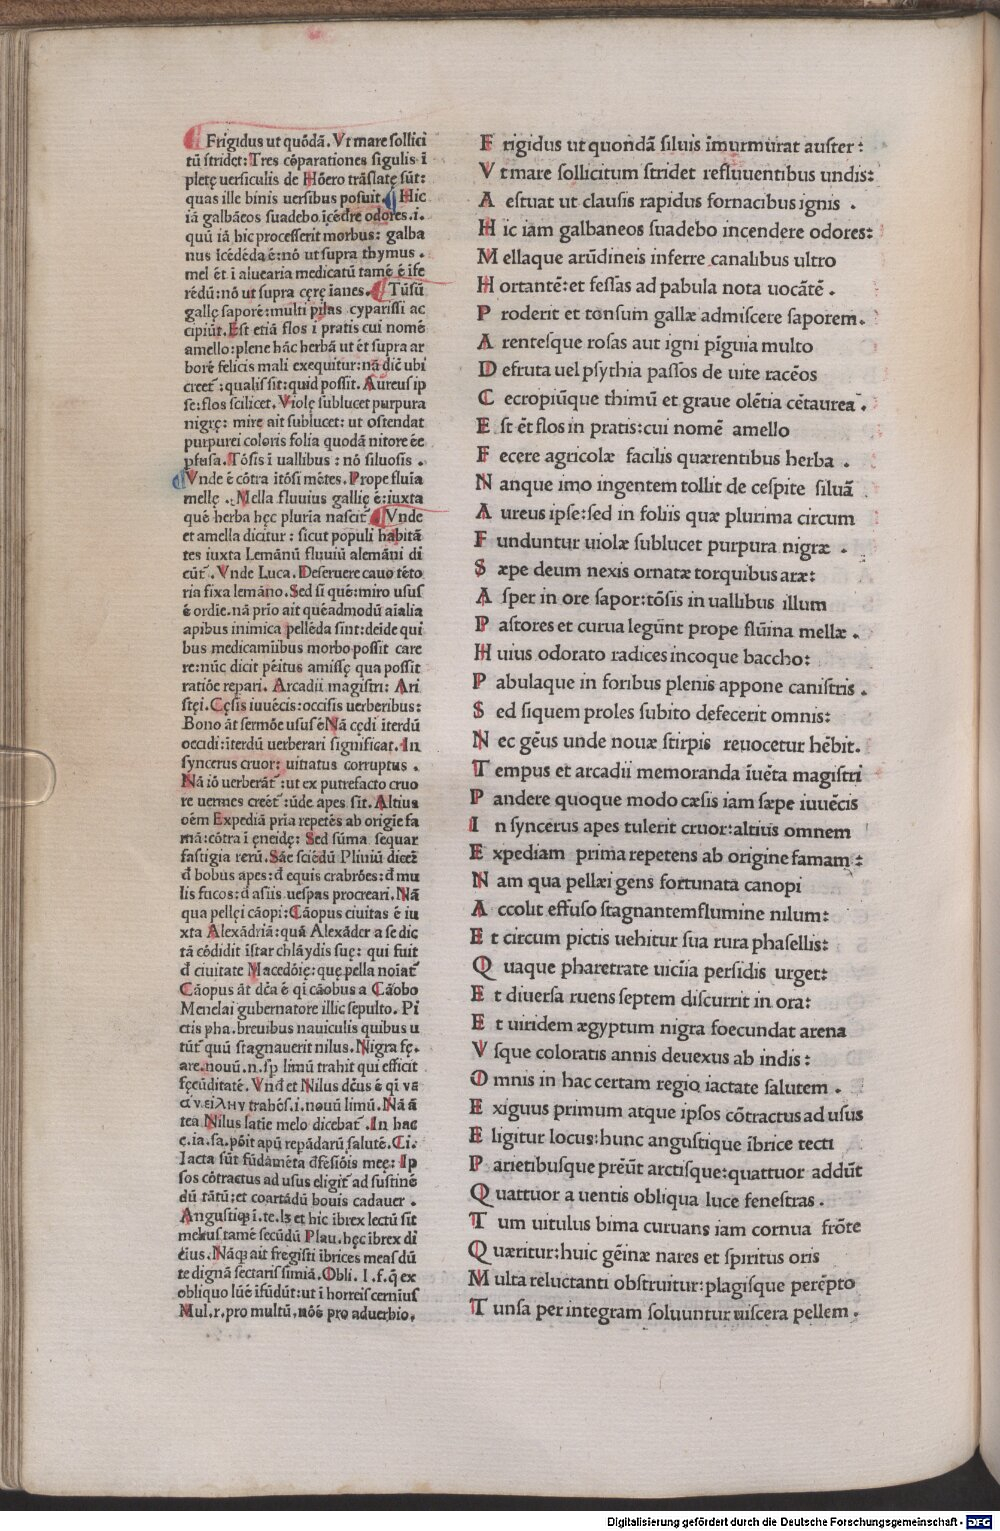 Frigidus ut quōdā. Vt mare sollici
tū stridet: Tres cōparationes sīgulis ī
pletę uersiculis de Hōero trāslatę sūt:
quas ille binis uersibus posuit. Hic
iā galbāeos suadebo īcēdre odores.i.
quū iā hic processerit morbus: galba
nus īcēdēda ē: nō ut supra thymus.
mel ēt ī aluearia medicatū tamē ē īfe
rēdū: nō ut supra cęrę īanes. Tūsū
gallę saporē: multi pilas cyparissi ac
cipiūt. Est etiā flos ī pratis cui nomē
amello: plene hāc herbā ut ēt supra ar
borē felicis mali exequitur: nā dic̄ ubi
creet̄: qualis sit: quid possit. Aureus ip
se: flos scilicet. Violę sublucet purpura
nigrę: mire ait sublucet: ut ostendat
purpurei coloris folia quodā nitore ēe
pfusa. Tōsis ī uallibus: nō siluosis.
Vnde ē cōtra ītōsi mōtes. Prope fluīa
mellę. Mella fluuius gallię ē: iuxta
quē herba hęc pluria nascit̄ Vnde
et amella dicitur: sicut populi habitā
tes iuxta Lemānū fluuiū alemāni di
cūt̄. Vnde Luca. Deseruere cauo tēto
ria fixa lemāno. Sed si quē: miro usus
ē ordīe. nā prīo ait quēadmodū aīalia
apibus inimica pellēda sint: deīde qui
bus medicamībus morbo possit care
re: nūc dicit pēitus amissę qua possit
ratiōe repari. Arcadii magistri: Ari
stęi. Cęsis iuuēcis: occisis uerberibus:
Bono āt sermōe usus ē Nā cędi īterdū
occidi: īterdū uerberari significat. In
syncerus cruor: uitiatus corruptus.
Nā iō uerberāt̄: ut ex putrefacto cruo
re uermes creēt̄: ūde apes sīt. Altius
oēm Expediā prīa repetēs ab origīe fa
mā: cōtra ī ęneidę: Sed sūma sequar
fastigia rerū. Sāe sciēdū Pliniū dicer̄
đ bobus apes: đ equis crabrōes: đ mu
lis fucos: đ asiis uespas procreari. Nā
qua pellęi cāopi: Cāopus ciuitas ē iu
xta Alexādriā: quā Alexāder a se dic
tā cōdidit īstar chlāydis suę: qui fuit
đ ciuitate Macedōię: quę pella noīat̄
Cāopus āt dc̄a ē qī cāobus a Cāobo
Menelai gubernatore illic sepulto. Pi
ctis pha. breuibus nauiculis quibus u
tūt̄ quū stagnauerit nilus. Nigra fę.
are. nouū.n.sp limū trahit qui efficit
fęcūditatē. Vnđ et Nilus dc̄us ē qī νε
αν ειλην trahēs.i.nouū limū. Nā ā
tea Nilus latīe melo dicebat̄. In hac
c.ia.sa.pōit apū repādarū salutē. Ci.
Iacta sūt fūdamēta đfēsiōis meę: Ip
sos cōtractus ad usus eligit̄ ad sustinē
dū tātū: et coartādū bouis cadauer.
Angustiqꝫ ī.te.lꝫ et hic ībrex lectū sit
melius tamē secūdū Plau. hęc ībrex di
cius. Nāqꝫ ait fregisti ībrices meas dū
te dignā sectaris simiā. Obli. l.f.q̄ ex
obliquo lūē īfūdūt: ut ī horreis cernīus
Mul.r.pro multū, nōē pro aduerbio.
Frigidus ut quondā siluis īmurmurat auster:
Vt mare sollicitum stridet refluuentibus undis:
Aestuat ut clausis rapidus fornacibus ignis.
Hic iam galbaneos suadebo incendere odores:
Mellaque arūdineis inferre canalibus ultro
Hortantē: et fessas ad pabula nota uocātē.
Proderit et tonsum gallæ admiscere saporem.
Arentesque rosas aut igni pīguia multo
Defruta uel psythia passos de uite racēos
Cecropiūque thimū et graue olētia cētaurea.
Est ēt flos in pratis: cui nomē amello
Fecere agricolæ facilis quærentibus herba.
Nanque imo ingentem tollit de cespite siluā
Aureus ipse: sed in foliis quæ plurima circum
Funduntur uiolæ sublucet purpura nigræ.
Sæpe deum nexis ornatæ torquibus aræ:
Asper in ore sapor: tōsis in uallibus illum
Pastores et curua legūnt prope flūina mellæ.
Huius odorato radices incoque baccho:
Pabulaque in foribus plenis appone canistris.
Sed siquem proles subito defecerit omnis:
Nec gēus unde nouæ stirpis reuocetur hēbit.
Tempus et arcadii memoranda īuēta magistri
Pandere quoque modo cæsis iam sæpe iuuēcis
In syncerus apes tulerit cruor: altius omnem
Expediam prima repetens ab origine famam:
Nam qua pellæi gens fortunata canopi
Accolit effuso stagnantem flumine nilum:
Et circum pictis uehitur sua rura phasellis:
Quaque pharetrate uicīia persidis urget:
Et diuersa ruens septem discurrit in ora:
Et uiridem ægyptum nigra foecundat arena
Vsque coloratis annis deuexus ab indis:
Omnis in hac certam regio iactate salutem.
Exiguus primum atque ipsos cōtractus ad usus
Eligitur locus: hunc angustique ībrice tecti
Parietibusque prēūt arctisque: quattuor addūt
Quattuor a uentis obliqua luce fenestras.
Tum uitulus bima curuans iam cornua frōte
Quæritur: huic gēinæ nares et spiritus oris
Multa reluctanti obstruitur: plagisque perēpto
Tunsa per integram soluuntur uiscera pellem.
Digitalisierung gefördert durch die Deutsche Forschungsgemeinschaft - DFG